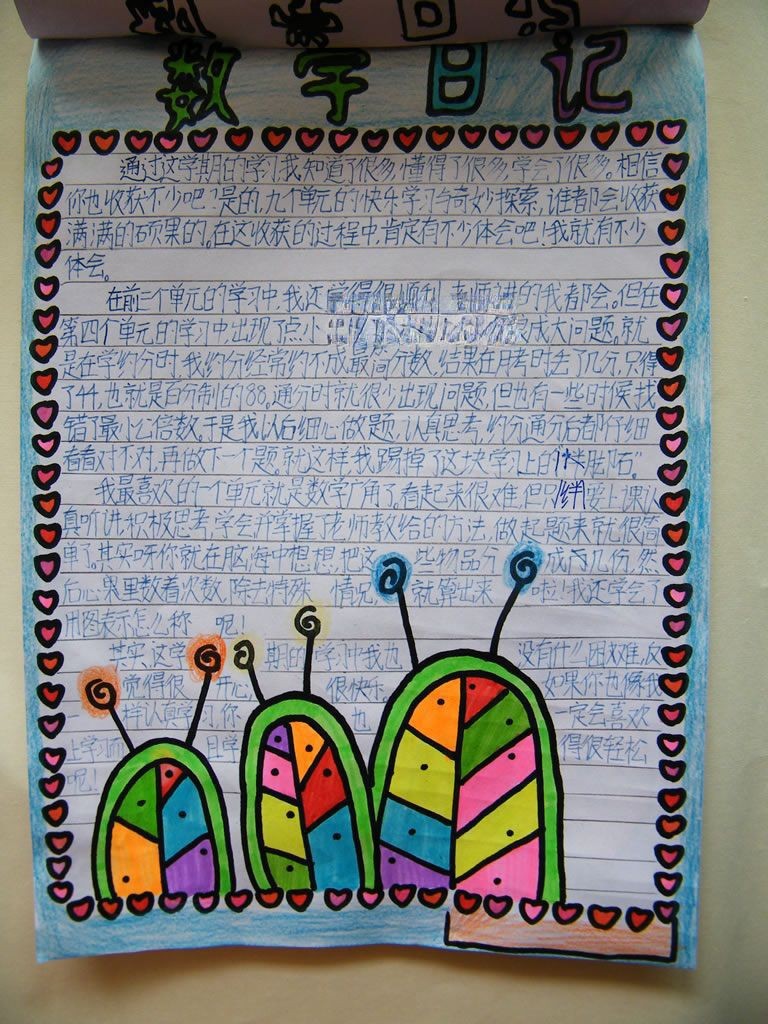 数学日记
通过这学期的学习我知道了很多,懂得了很多,学会了很多。相信
你也收获不少吧?是的,九个单元的快乐学习与奇妙探索,谁都会收获
满满的硕果的。在这收获的过程中,肯定有不少体会吧!我就有不少
体会。
在前三个单元的学习中,我还学得很顺利,老师讲的我都会。但在
第四个单元的学习中出现了点小成大问题,就
是在学约分时,我约分经常约不成最简分数,结果在月考时丢了几分,只得
了44,也就是百分制的88。通分时就很少出现问题,但也有一些时候找
错了最小公倍数。于是我以后细心做题,认真思考,约分通分后都仔细
看看对不对,再做下一个题。就这样,我踢掉了这块学习上的“绊脚石”。
我最喜欢的一个单元就是数学广角了,看起来很难,但只要上课认
真听讲,积极思考,学会并掌握了老师教给的方法,做起题来就很简
单了。其实呀,你就在脑海中想想,把这些物品分成几份,然
后心里数着次数,除去特殊情况,就算出来啦!我还学会了
用图表示怎么称呢!
其实,这学期的学习中我也没有什么困难,反
觉得很开心,很快乐。如果你也像我
一样认真学习,你也一定会喜欢
上学习而且学得很轻松
呢!